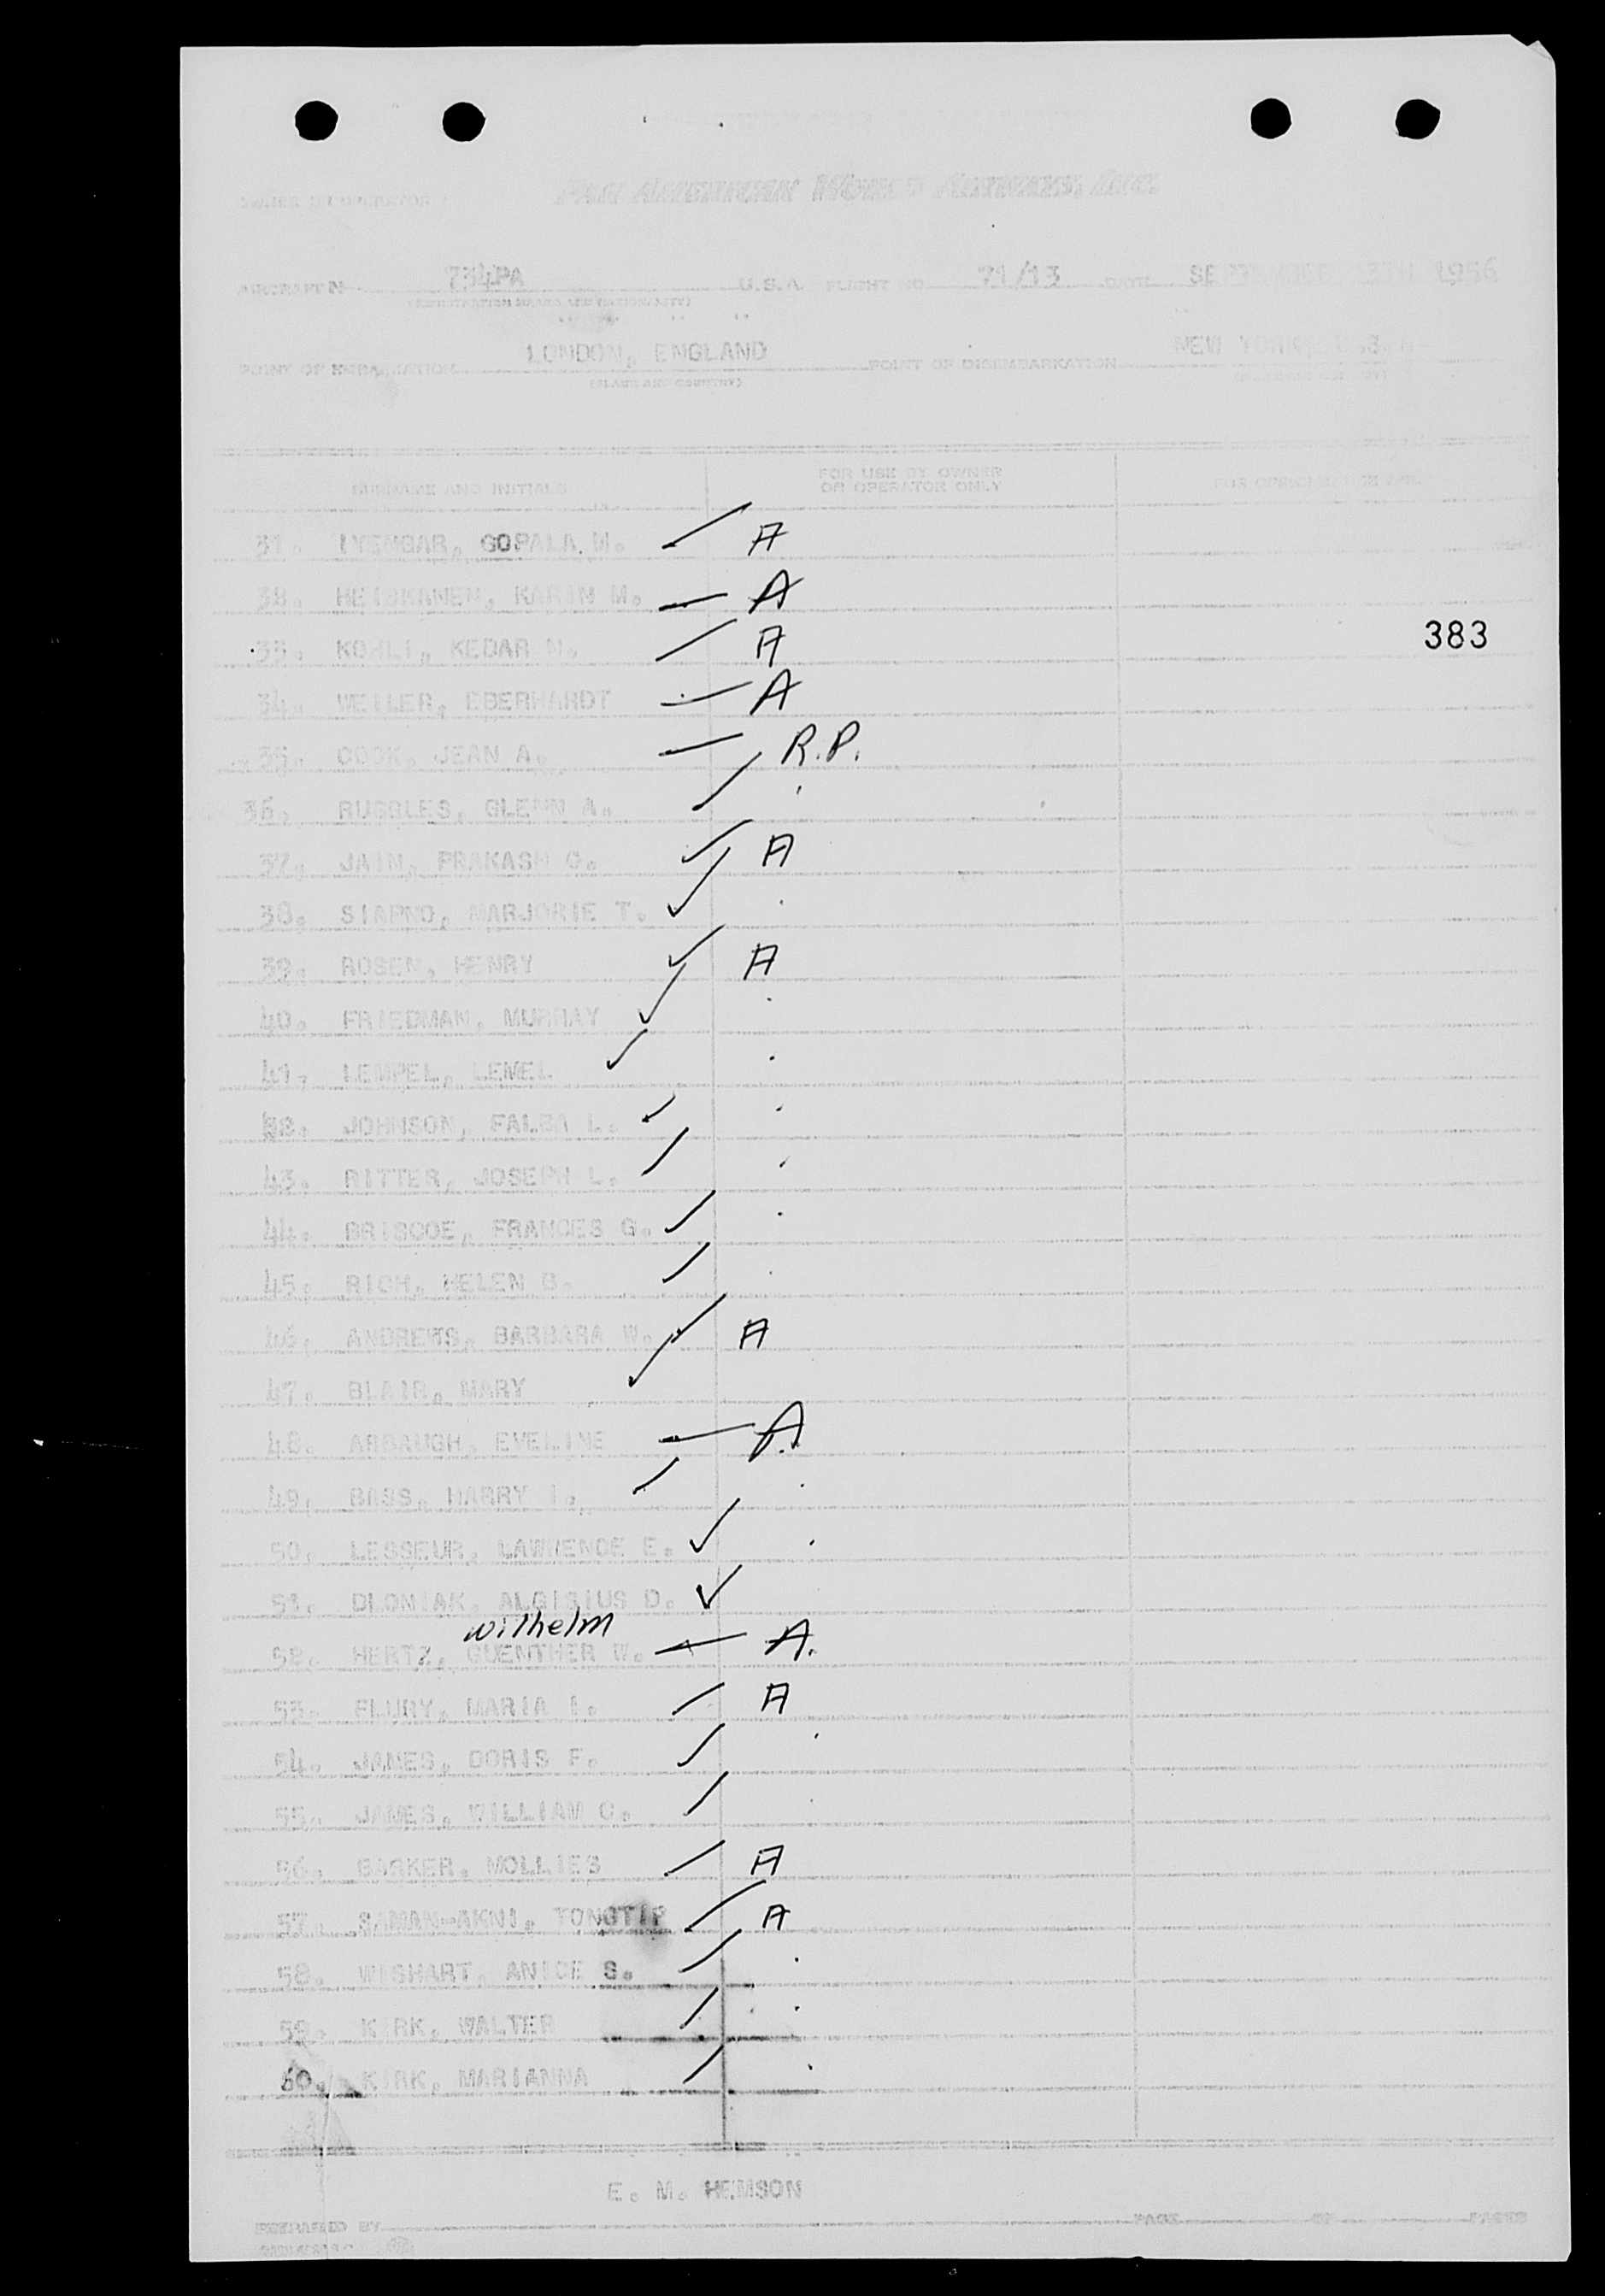 PAN AMERICAN WORLD AIRWAYS, INC.
OWNER OR OPERATOR
AIRCRAFT N 734PA U.S.A. FLIGHT NO 71/13 DATE SEPTEMBER 13TH 1956
(REGISTRATION MARKS AND NATIONALITY)
POINT OF EMBARKATION LONDON, ENGLAND POINT OF DISEMBARKATION NEW YORK,
(PLACE AND COUNTRY) (PLACE AND COUNTRY)
SURNAME AND INITIALS FOR USE BY OWNER OR OPERATOR ONLY FOR OFFICIAL USE ONLY
31. IYENGAR, GOPALA M. A
32. HEISKANEN, KARIN M. A
383
33. KOHLI, KEDAR N. A
34. WEILER, EBERHARDT A
35. COOK, JEAN A. R.P.
36. RUGGLES, GLENN A.
37. JAIN, PRAKASH C. A
38. SIAPNO, MARJORIE T.
39. ROSEN, HENRY A
40. FRIEDMAN, MURRAY
41. LEMPEL, LEMEL
42. JOHNSON, FALBA L.
43. RITTER, JOSEPH L.
44. BRISCOE, FRANCES G.
45. RICH, HELEN G.
46. ANDREWS, BARBARA W. A
47. BLAIR, MARY
48. ARBAUGH, EVELINE A.
49. BASS, HARRY I.
50. LESSEUR, LAWRENCE E.
51. DLONIAK, ALOISIUS D.
Wilhelm
52. HERTZ, GUENTHER W. A.
53. FLURY, MARIA I. A
54. JAMES, DORIS F.
55. JAMES, WILLIAM C.
56. BARKER, MOLLIE S A
57. SAMAN-AKNI, TONGTIP A
58. WISHART, ANICE S.
59. KIRK, WALTER
60. KIRK, MARIANNA
E. M. HEMSON
PREPARED BY PAGE OF PAGES